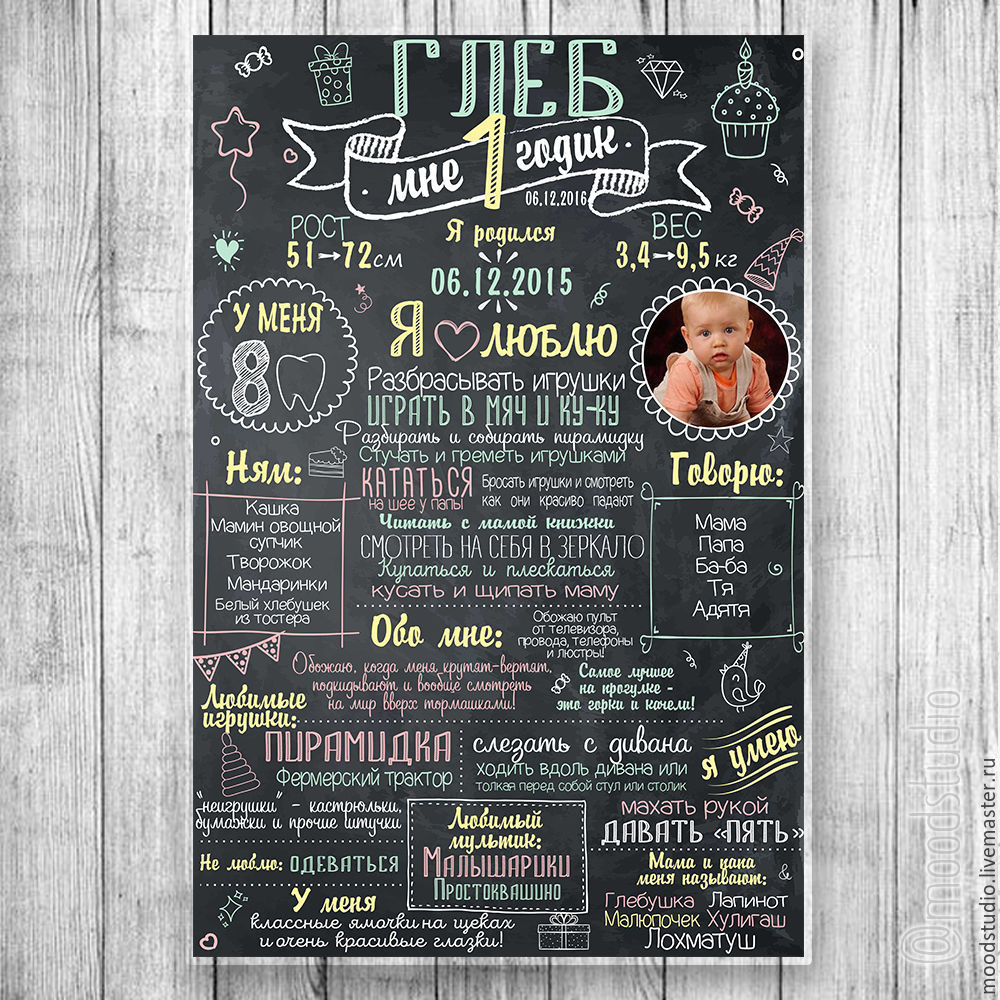 ГЛЕБ
мне 1 годик
06.12.2016
РОСТ
51→72см
Я родился
06.12.2015
ВЕС
3,4→9,5 кг
У МЕНЯ
8
Я ЛЮБЛЮ
Разбрасывать игрушки
ИГРАТЬ В МЯЧ И КУ-КУ
Разбирать и собирать пирамидку
Стучать и греметь игрушками
КАТАТЬСЯ
на шее у папы
Бросать игрушки и смотреть
как они красиво падают
Читать с мамой книжки
СМОТРЕТЬ НА СЕБЯ В ЗЕРКАЛО
Купаться и плескаться
кусать и щипать маму
Ням:
Кашка
Мамин овощной
супчик
Творожок
Мандаринки
Белый хлебушек
из тостера
Говорю:
Мама
Папа
Ба-ба
Тя
Адятя
Обо мне:
Обожаю пульт
от телевизора,
провода, телефоны
и люстры!
Обожаю, когда меня крутят-вертят,
подкидывают и вообще смотреть
на мир вверх тормашками!
Самое лучшее
на прогулке -
это горки и качели!
Любимые
игрушки:
ПИРАМИДКА
Фермерский трактор
"неигрушки" - кастрюльки,
бумажки и прочие штучки
я умею
слезать с дивана
ходить вдоль дивана или
толкая перед собой стул или столик
махать рукой
ДАВАТЬ «ПЯТЬ»
Не люблю: ОДЕВАТЬСЯ
Любимый
мультик:
МАЛЫШАРИКИ
ПРОСТОКВАШИНО
Мама и папа
меня называют:
&
Глебушка Лапинот
Малюпочек Хулигаш
Лохматуш
У меня
классные ямочки на щеках
и очень красивые глазки!
@moodstudio
moodstudio.livemaster.ru